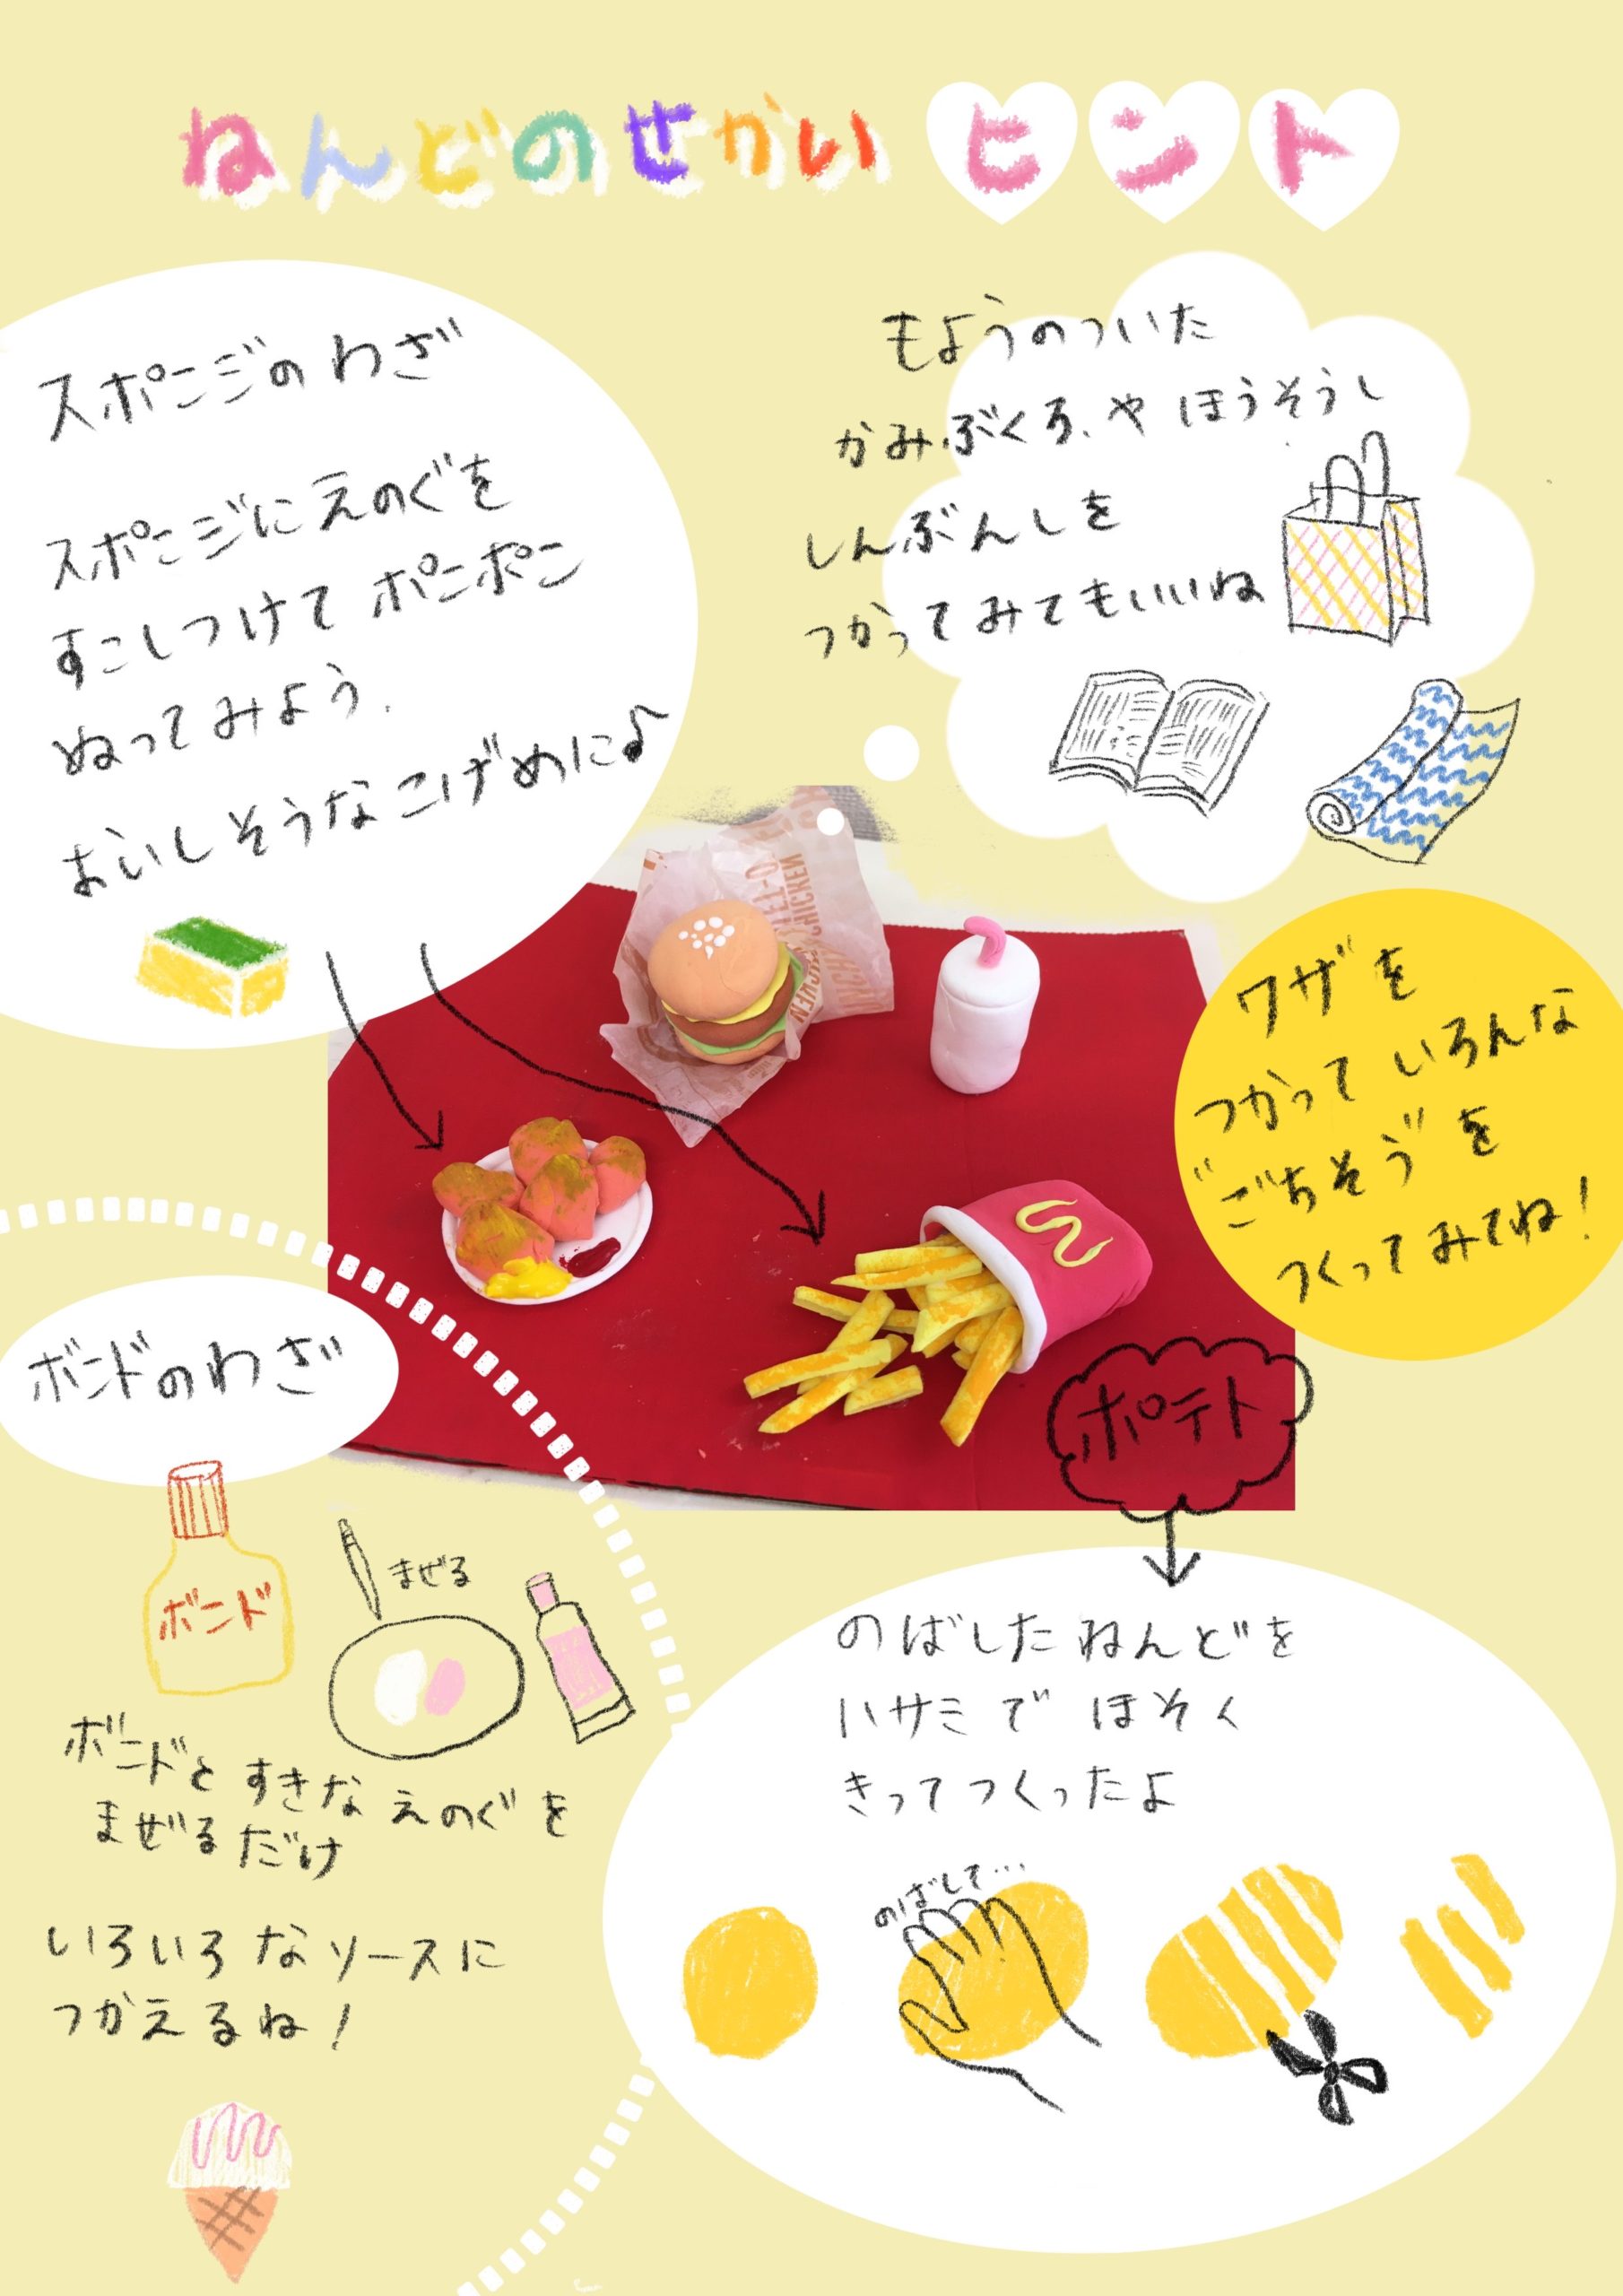 ねんどのせかい ヒント
スポンジのわざ
スポンジにえのぐを
すこしつけて ポンポン
ぬってみよう.
おいしそうなこげめに♪
もようのついた
かみぶくろ、や ほうそうし
しんぶんしを
つかってみてもいいね
ワザを
つかって いろんな
"ごちそう"を
つくってみてね!
CHICKEN
ボンドのわざ
ボンド
まぜる
ボンドと すきな えのぐを
まぜる だけ
いろいろ なソースに
つかえるね!
ポテト
のばした ねんどを
ハサミで ほそく
きってつくったよ
のばして…